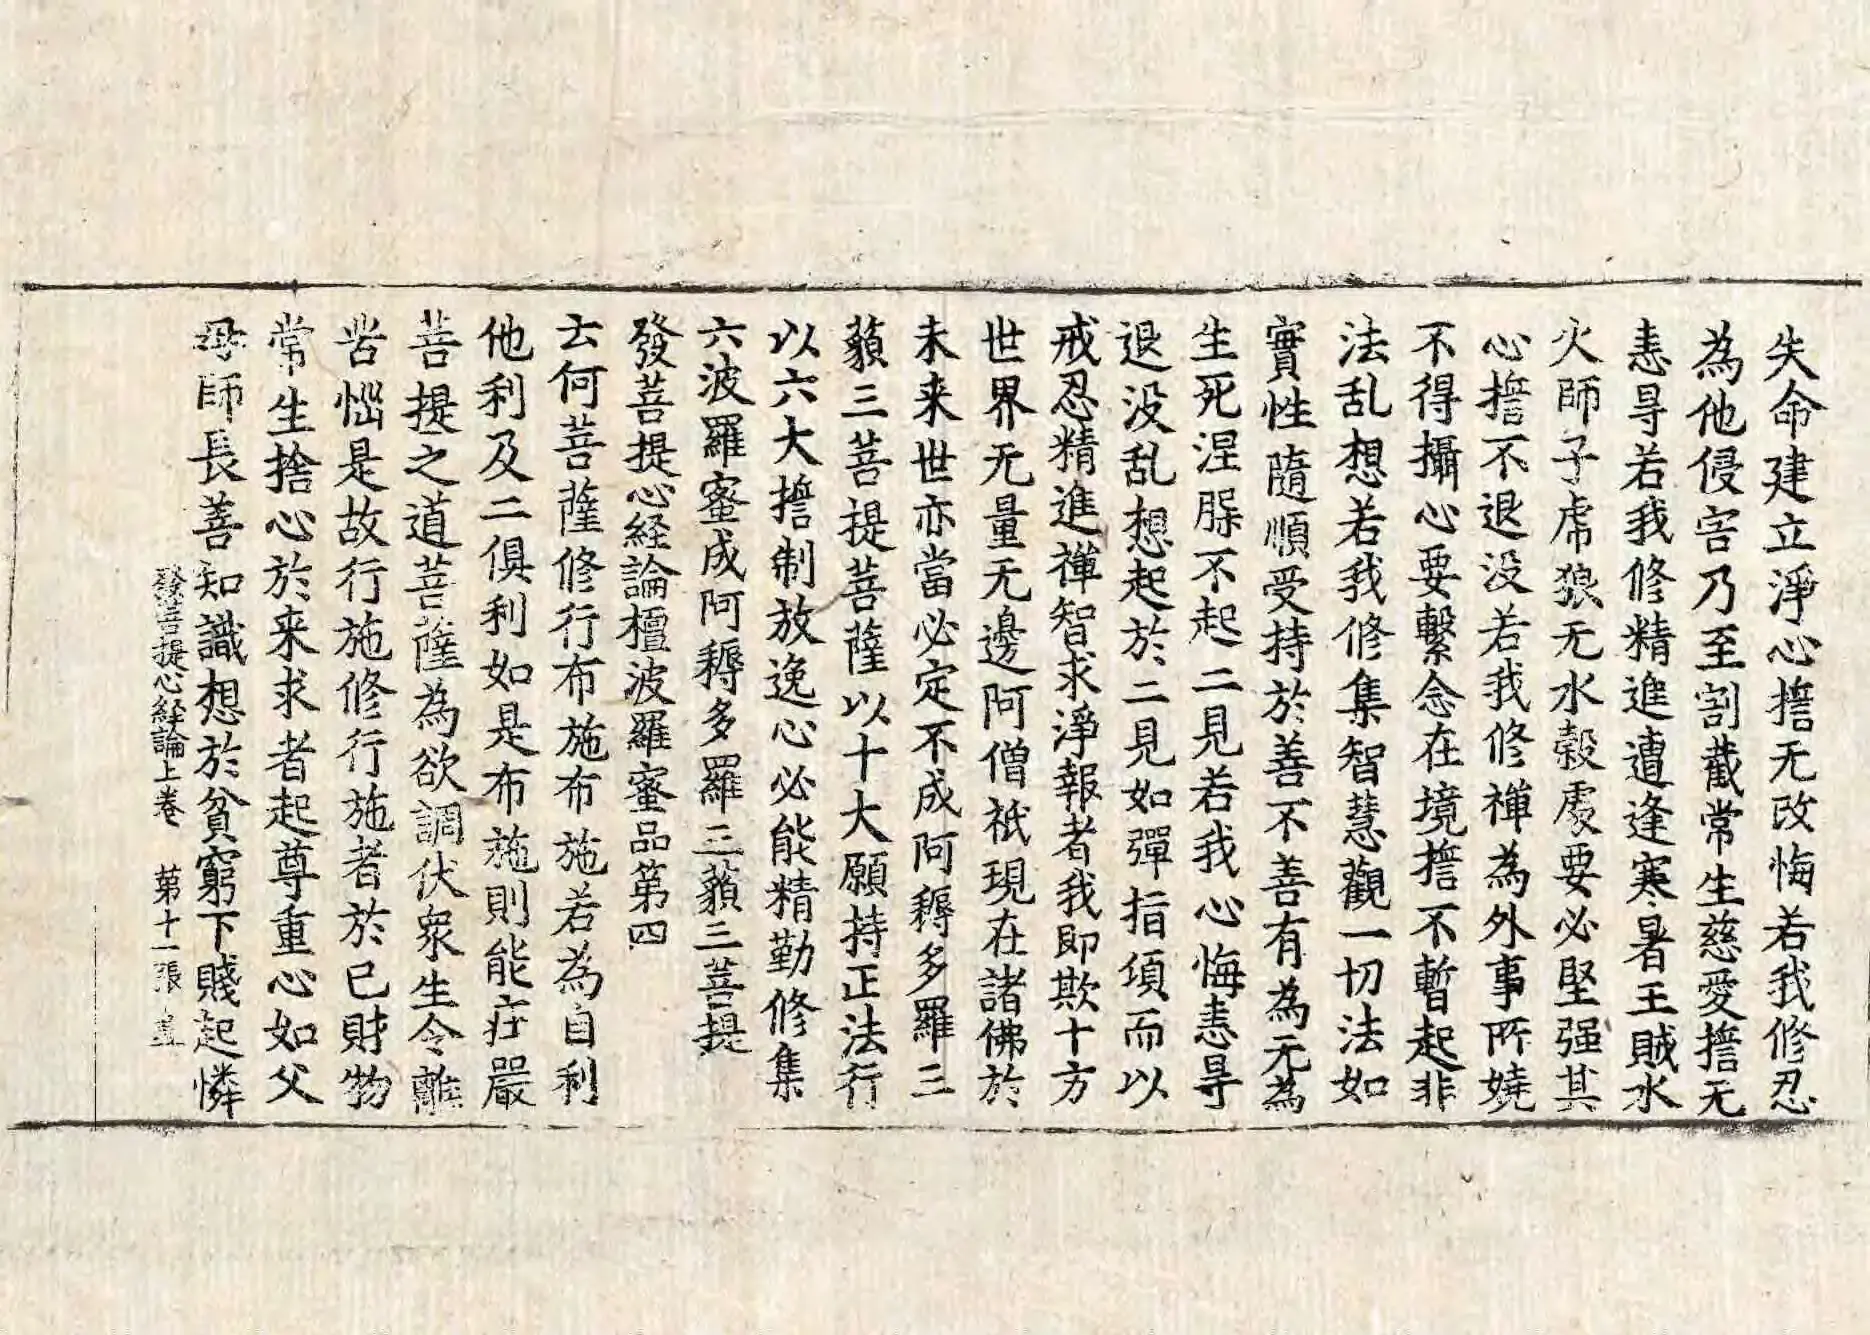 失命建立淨心擔无改悔若我修忍
為他侵害乃至割截常生慈愛擔无
恚㝵若我修精進遭逢寒暑王賊水
火師子虎狼无水糓處要必堅强其
心擔不退没若我修禪為外事所嬈
不得攝心要繫念在境擔不暫起非
法乱想若我修集智慧觀一切法如
實性隨順受持於善不善有為无為
生死涅槃不起二見若我心悔恚㝵
退没乱想起於二見如彈指項而以
戒忍精進禪智求淨報者我即欺十方
世界无量无邊阿僧祇現在諸佛於
未来世亦當必定不成阿耨多羅三
藐三菩提菩薩以十大願持正法行
以六大擔制放逸心必能精勤修集
六波羅蜜成阿耨多羅三藐三菩提
發菩提心経論檀波羅蜜品第四
云何菩薩修行布施布施若為自利
他利及二俱利如是布施則能庄嚴
菩提之道菩薩為欲調伏衆生令離
苦惱是故行施修行施者於已財物
常生捨心於来求者起尊重心如父
母師長善知識想於貧窮下賤起憐
發菩提心経論上卷 第十一張